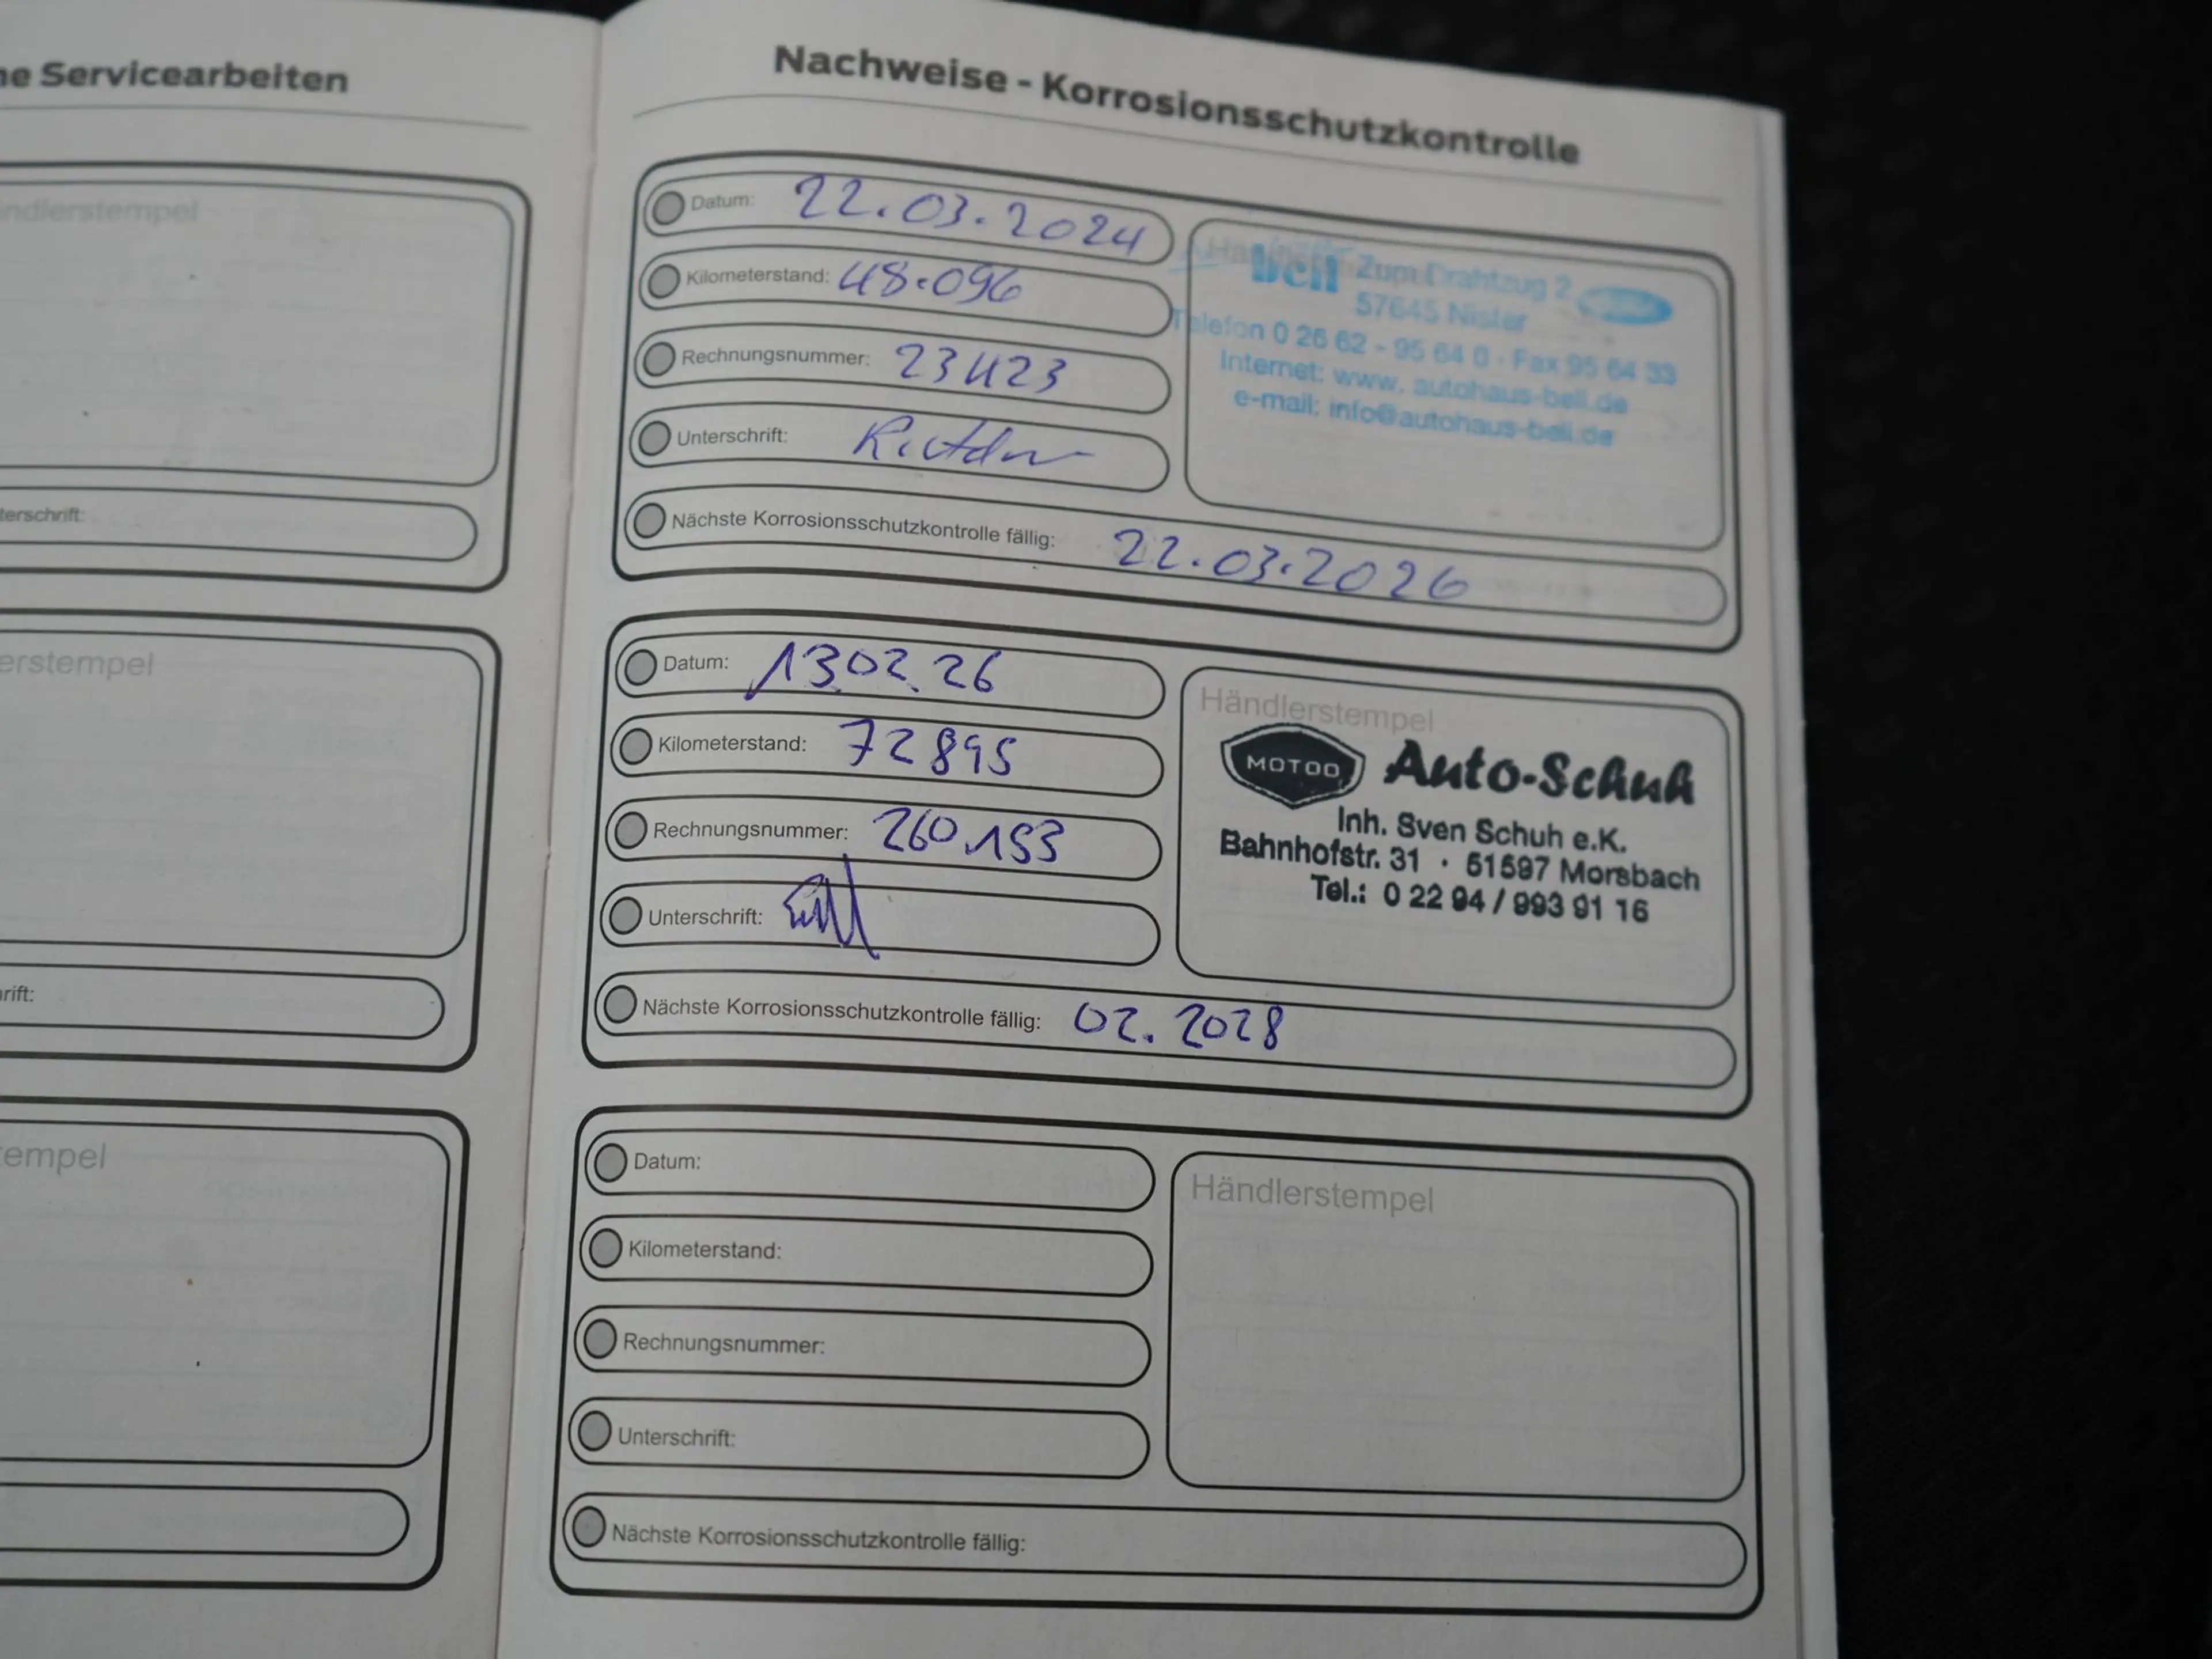 ne Servicearbeiten
ndlerstempel
terschrift:
erstempel
rift:
tempel
Nachweise - Korrosionsschutzkontrolle
Datum: 22.03.2024
Kilometerstand: 48.096
Rechnungsnummer: 23423
Unterschrift:
Nächste Korrosionsschutzkontrolle fällig: 22.03.2026
bell Zum Drahtzug 2
57645 Nister
Telefon 0 26 62 - 95 64 0 · Fax 95 64 33
Internet: www. autohaus-bell.de
e-mail: info@autohaus-bell.de
Datum: 13.02.26
Kilometerstand: 72895
Rechnungsnummer: 260153
Unterschrift:
Nächste Korrosionsschutzkontrolle fällig: 02.2028
Händlerstempel
MOTOO Auto-Schuh
Inh. Sven Schuh e.K.
Bahnhofstr. 31 · 51597 Morsbach
Tel.: 0 22 94 / 993 91 16
Datum:
Kilometerstand:
Rechnungsnummer:
Unterschrift:
Nächste Korrosionsschutzkontrolle fällig:
Händlerstempel